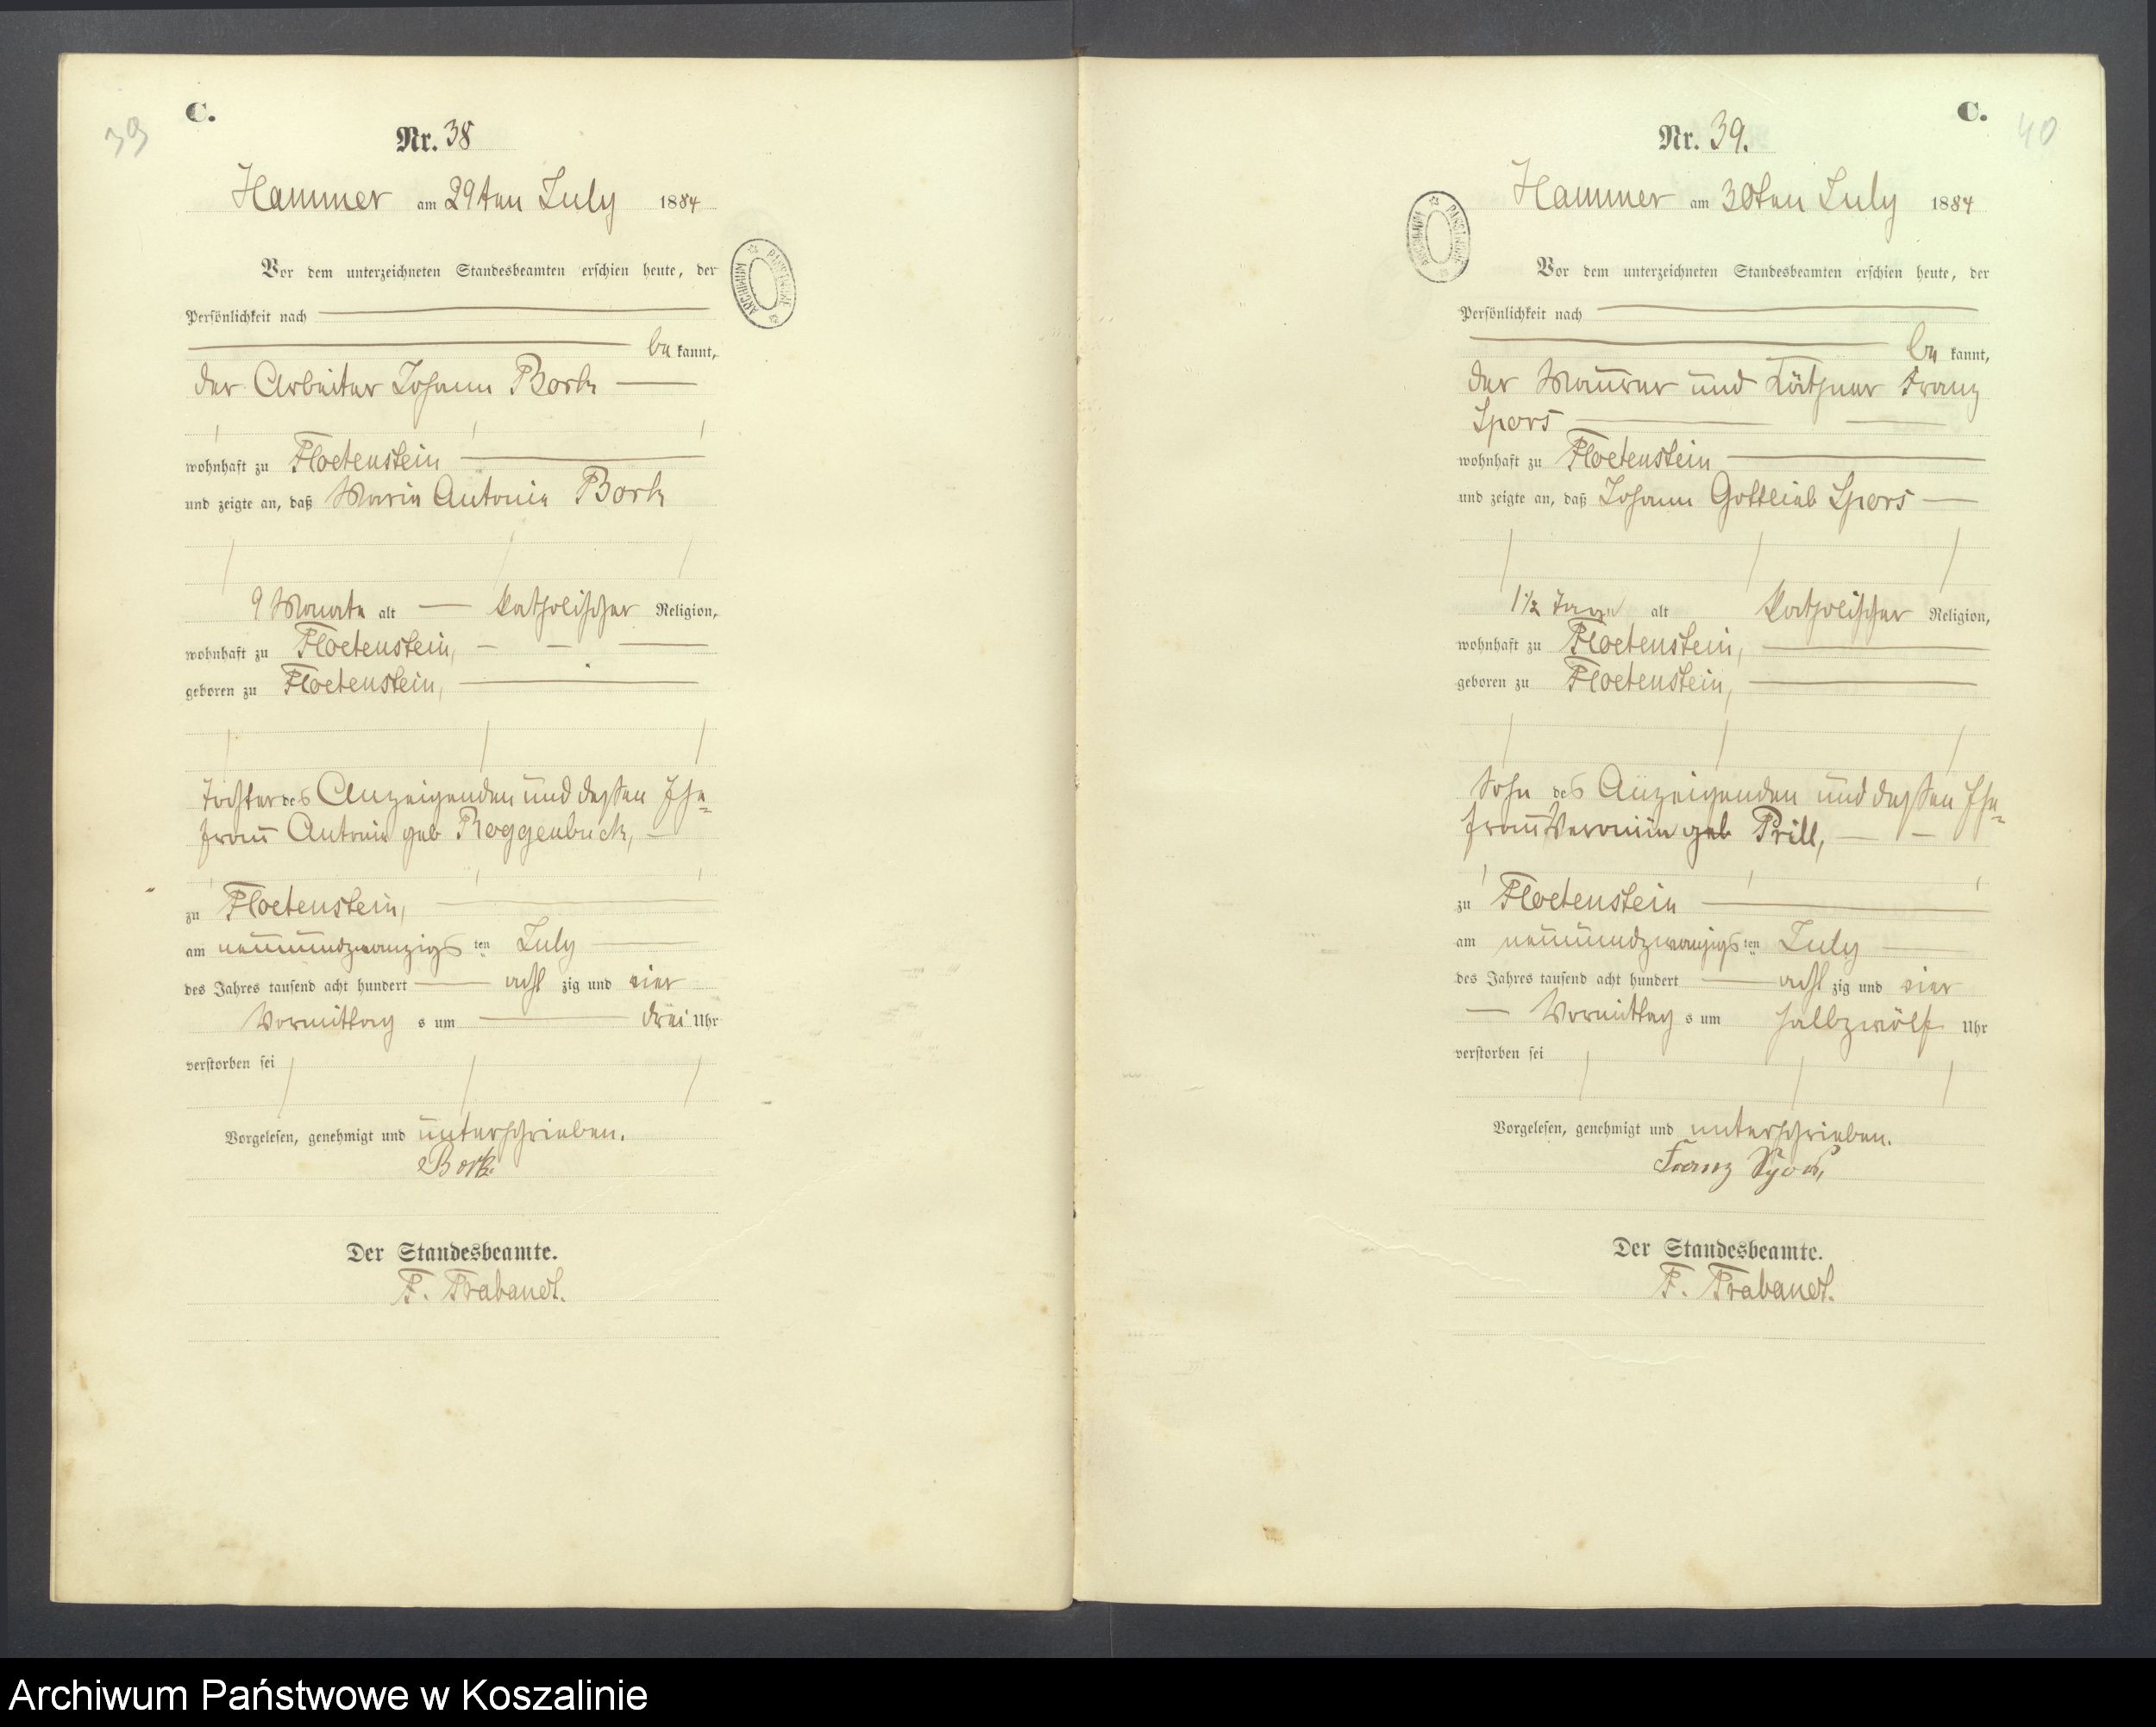 39
C.
Nr. 38
Hammer am 29ten July 1884
Vor dem unterzeichneten Standesbeamten erschien heute, der
Persönlichkeit nach
be kannt,
der Arbeiter Johann Bork
wohnhaft zu Floetenstein
und zeigte an, daß Marie Antonie Bork
9 Monate alt katholischer Religion,
wohnhaft zu Floetenstein,
geboren zu Floetenstein,
Tochter des Anzeigenden und dessen Ehe=
frau Antonie geb Roggenbuck,
zu Floetenstein,
am neunundzwanzigsten July
des Jahres tausend acht hundert acht zig und vier
Vormittag s um drei Uhr
verstorben sei
Vorgelesen, genehmigt und unterschrieben.
Bork
Der Standesbeamte.
F. Trabandt.
ARCHIWUM PAŃSTWOWE
40
C.
Nr. 39.
Hammer am 30ten July 1884
Vor dem unterzeichneten Standesbeamten erschien heute, der
Persönlichkeit nach
be kannt,
der Maurer und Käthner Franz
Spors
wohnhaft zu Floetenstein
und zeigte an, daß Johann Gottlieb Spors
1½ Tage alt katholischer Religion,
wohnhaft zu Floetenstein,
geboren zu Floetenstein,
Sohn des Anzeigenden und dessen Ehe=
frau Veronika geb Prill,
zu Floetenstein
am neunundzwanzigsten July
des Jahres tausend acht hundert acht zig und vier
Vormittag s um halbzwölf Uhr
verstorben sei
Vorgelesen, genehmigt und unterschrieben.
Franz Spors
Der Standesbeamte.
F. Trabandt.
ARCHIWUM PAŃSTWOWE
Archiwum Państwowe w Koszalinie